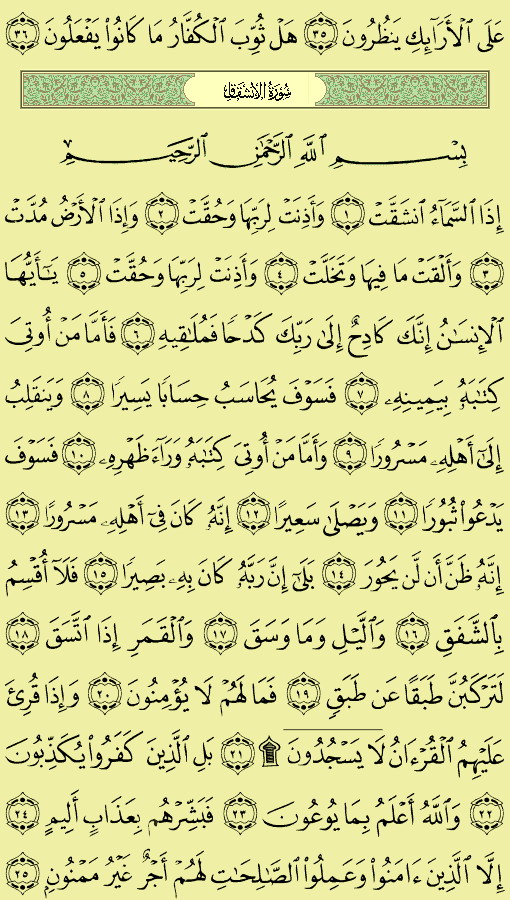 عَلَى ٱلْأَرَآئِكِ يَنظُرُونَ ٣٥ هَلْ ثُوِّبَ ٱلْكُفَّارُ مَا كَانُوا۟ يَفْعَلُونَ ٣٦
سُورَةُ الانشقاق
بِسْمِ ٱللَّهِ ٱلرَّحْمَٰنِ ٱلرَّحِيمِ
إِذَا ٱلسَّمَآءُ ٱنشَقَّتْ ١ وَأَذِنَتْ لِرَبِّهَا وَحُقَّتْ ٢ وَإِذَا ٱلْأَرْضُ مُدَّتْ
٣ وَأَلْقَتْ مَا فِيهَا وَتَخَلَّتْ ٤ وَأَذِنَتْ لِرَبِّهَا وَحُقَّتْ ٥ يَٰٓأَيُّهَا
ٱلْإِنسَٰنُ إِنَّكَ كَادِحٌ إِلَىٰ رَبِّكَ كَدْحًا فَمُلَٰقِيهِ ٦ فَأَمَّا مَنْ أُوتِىَ
كِتَٰبَهُۥ بِيَمِينِهِۦ ٧ فَسَوْفَ يُحَاسَبُ حِسَابًا يَسِيرًا ٨ وَيَنقَلِبُ
إِلَىٰٓ أَهْلِهِۦ مَسْرُورًا ٩ وَأَمَّا مَنْ أُوتِىَ كِتَٰبَهُۥ وَرَآءَ ظَهْرِهِۦ ١٠ فَسَوْفَ
يَدْعُوا۟ ثُبُورًا ١١ وَيَصْلَىٰ سَعِيرًا ١٢ إِنَّهُۥ كَانَ فِىٓ أَهْلِهِۦ مَسْرُورًا ١٣
إِنَّهُۥ ظَنَّ أَن لَّن يَحُورَ ١٤ بَلَىٰٓ إِنَّ رَبَّهُۥ كَانَ بِهِۦ بَصِيرًا ١٥ فَلَآ أُقْسِمُ
بِٱلشَّفَقِ ١٦ وَٱلَّيْلِ وَمَا وَسَقَ ١٧ وَٱلْقَمَرِ إِذَا ٱتَّسَقَ ١٨
لَتَرْكَبُنَّ طَبَقًا عَن طَبَقٍ ١٩ فَمَا لَهُمْ لَا يُؤْمِنُونَ ٢٠ وَإِذَا قُرِئَ
عَلَيْهِمُ ٱلْقُرْءَانُ لَا يَسْجُدُونَ ۩ ٢١ بَلِ ٱلَّذِينَ كَفَرُوا۟ يُكَذِّبُونَ
٢٢ وَٱللَّهُ أَعْلَمُ بِمَا يُوعُونَ ٢٣ فَبَشِّرْهُم بِعَذَابٍ أَلِيمٍ ٢٤
إِلَّا ٱلَّذِينَ ءَامَنُوا۟ وَعَمِلُوا۟ ٱلصَّٰلِحَٰتِ لَهُمْ أَجْرٌ غَيْرُ مَمْنُونٍۭ ٢٥